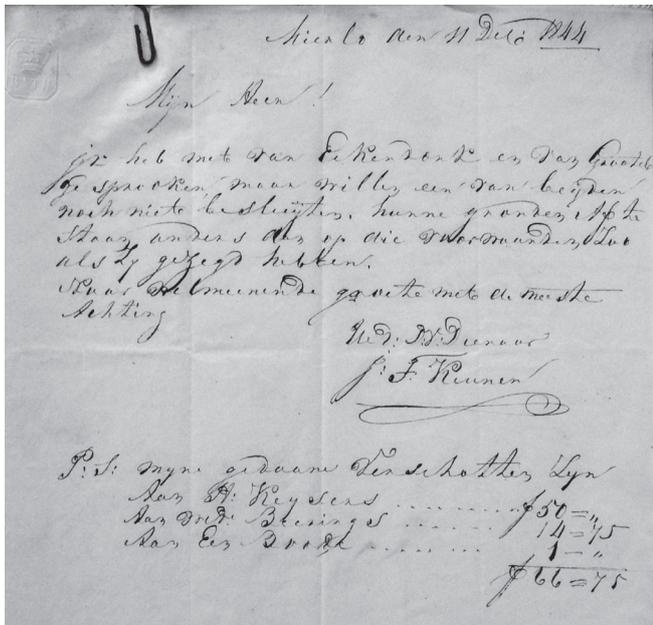 Mierlo den 11 Dec 1844
Mijn Heer!
ik heb met van Eekendonk en van Grootel
gesprooken, maar willen een van beyden
noch niete besluyten, hunne gronden af te
staan anders dan op die voorwaarden Zoo
als Zy gezegd hebben.
Naar welmeenende groete met de meeste
Achting
UEd: D.W: Dienaar
J: F. Keunen
P: S: myne gedaane Verschotten Zyn
Aan A: Keysers .......... ƒ 50 = „
Aan wed: Brerings ...... 14 = 75
Aan Een Boode ........ 1 — „
ƒ 66 = 75